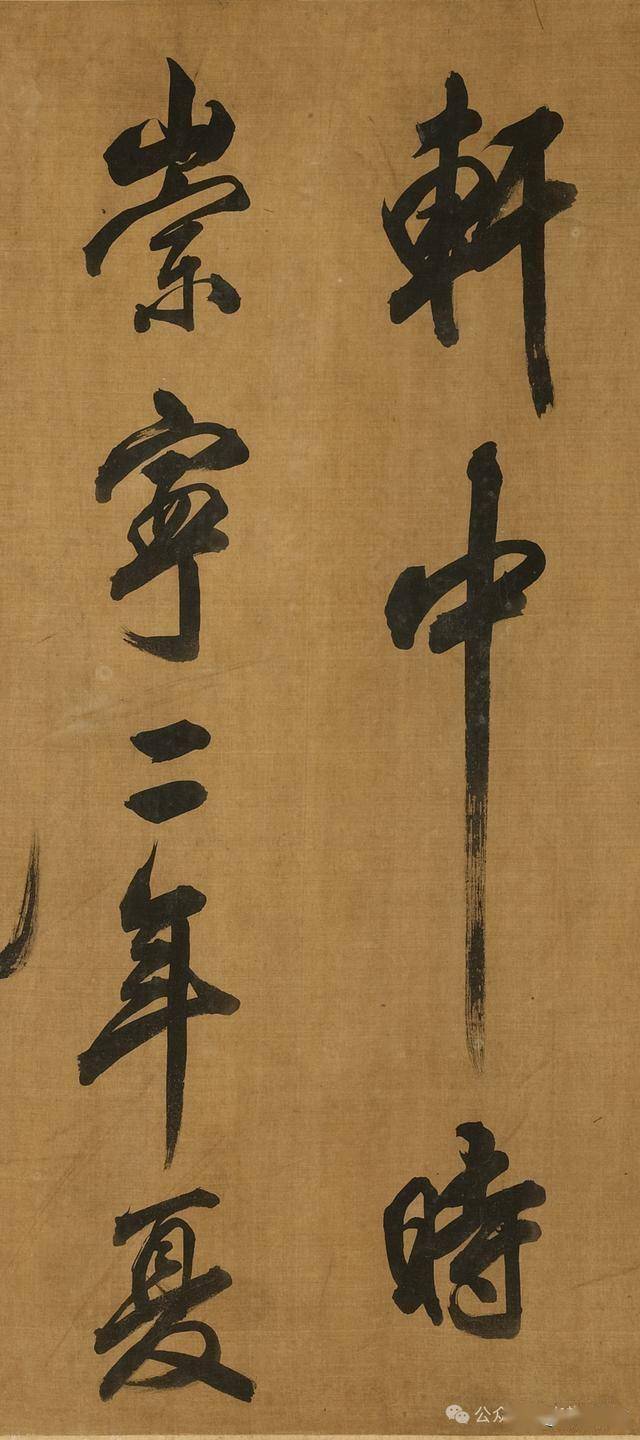 軒中時
崇寧二年夏
公众